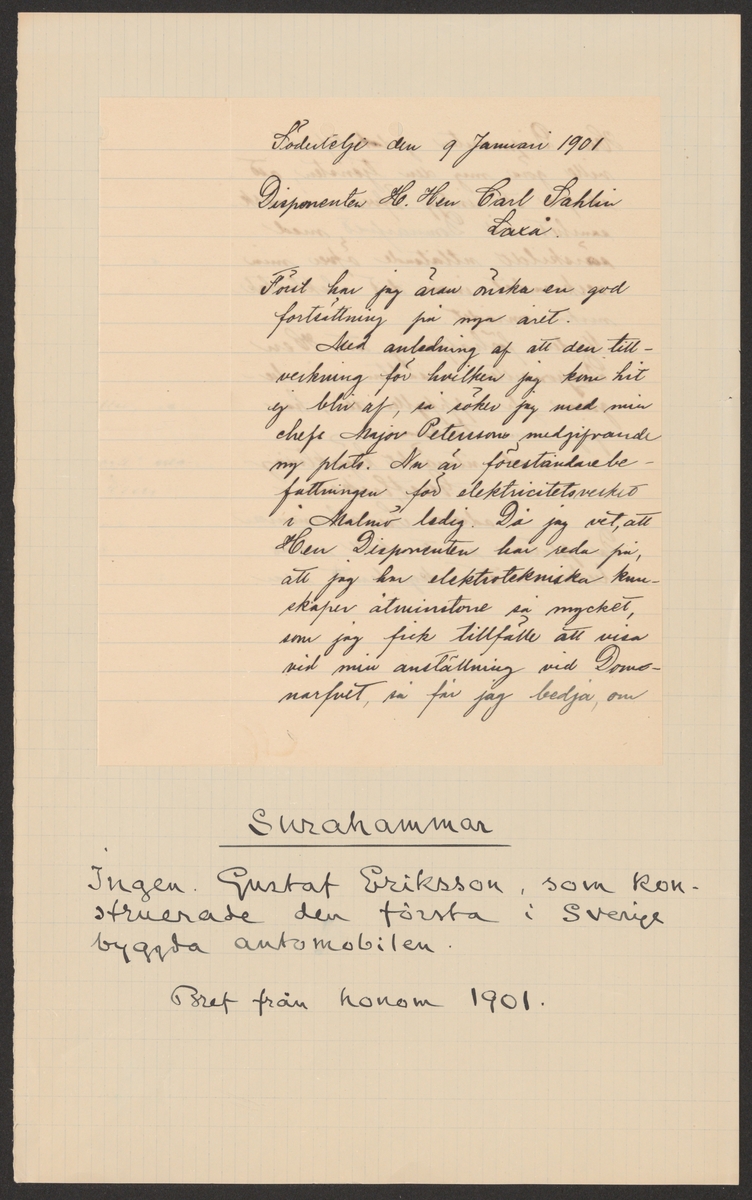 Södertelje den 9 Januari 1901
Disponenten H. Herr Carl Sahlin
Laxå.
Först har jag äran önska en god
fortsättning på nya året.
Med anledning af att den till-
verkning för hvilken jag kom hit
ej blir af, så söker jag med min
chefs Major Peterssons medgifvande
ny plats. Nu är föreståndarebe-
fattningen för elektricitetsverket
i Malmö ledig. Då jag vet, att
Herr Disponenten har reda på,
att jag har elektrotekniska kun-
skaper åtminstone så mycket,
som jag fick tillfälle att visa
vid min anställning vid Domn-
narfvet, så får jag bedja, om
Surahammar
Ingen. Gustaf Eriksson, som kon-
struerade den första i Sverige
byggda automobilen.
Bref från honom 1901.